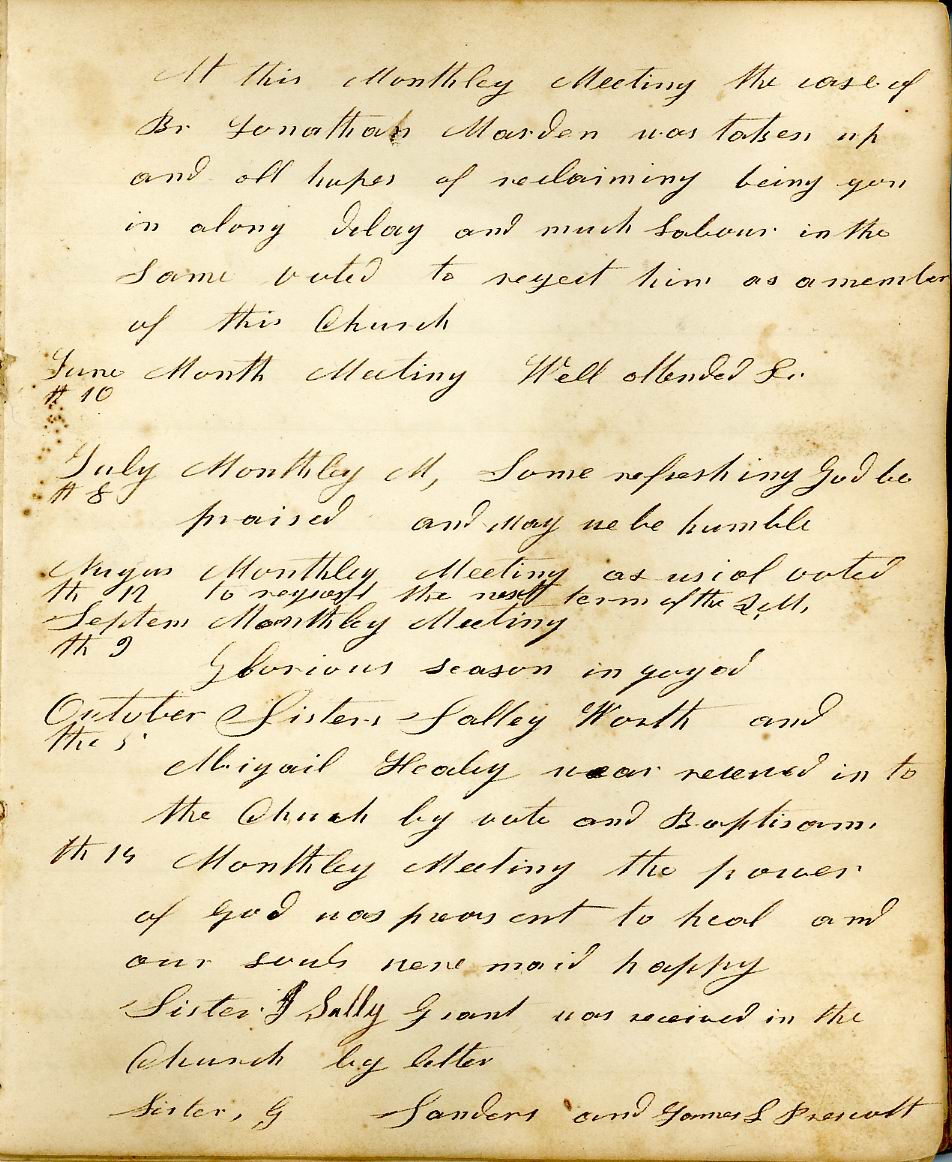 At this Monthley Meeting the case of
Br Jonathan Marden was taken up
and all hopes of reclaiming being gon
in along delay and much Labour in the
Same voted to reject him as a member
of this Church
June Month Meeting Well attended &c.
th 10
July Monthley M, Some refreshing God be
th 8 praised and May we be humble
Augus Monthley Meeting as usial voted
th 12 to request the next term of the Q,M,
Septem Monthley Meeting
th 9
Glorious season in joyed
October Sisters Salley Worth and
the 5
Abigail Healey wear received in to
the Church by vote and Baptisam.
th 14 Monthley Meeting the power
of God was preasent to heal and
our souls were maid happy
Sister Sally Grant was received in the
Church by letter
Sister, G Sanders and James L Prescott